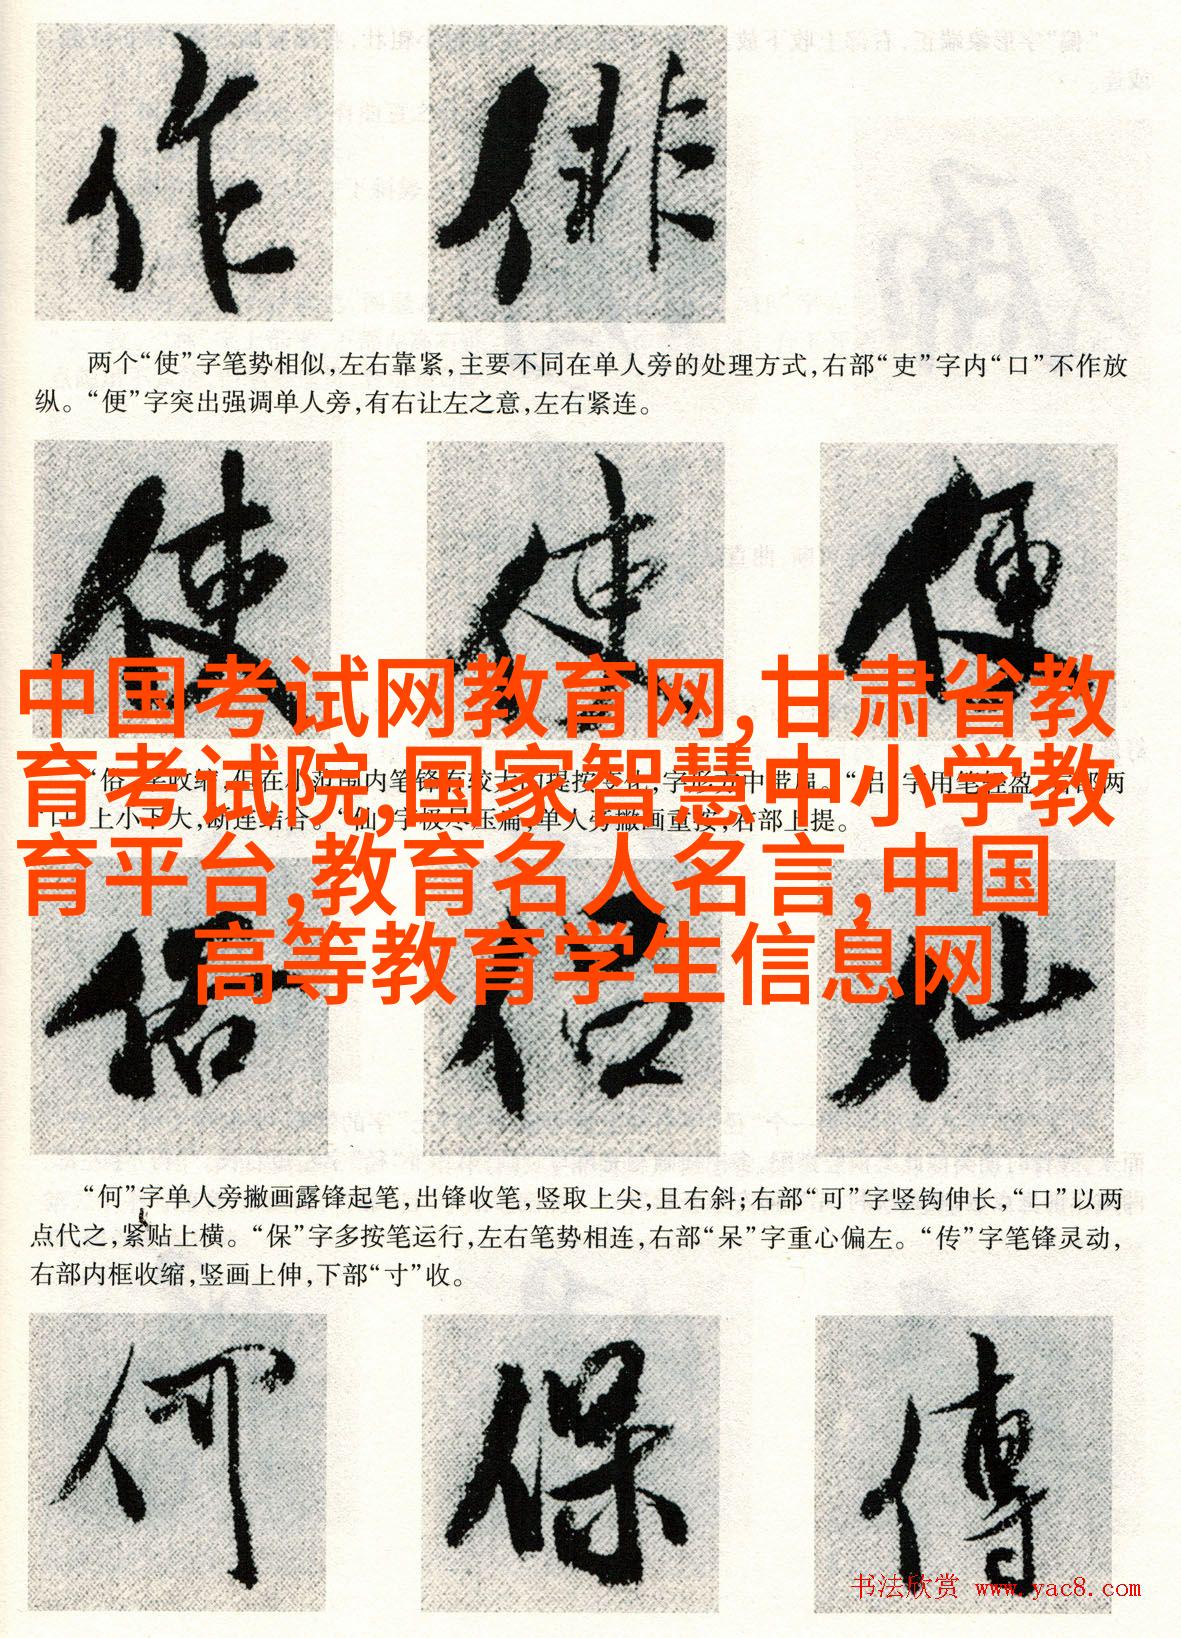 作 俳
两个“使”字笔势相似,左右靠紧,主要不同在单人旁的处理方式,右部“吏”字内“口”不作放
纵。“便”字突出强调单人旁,有右让左之意,左右紧连。
使 使 便
中国考试网教育网,甘肃省教
育考试院,国家智慧中小学教
育平台,教育名人名言,中国
高等教育学生信息网
“俗”字收缩,但在小范围内笔锋有较大的提按变化,字形方中带扁。“吕”字用笔轻盈,右部两
“口”上小下大,断连结合。“仙”字极尽压扁,单人旁撇画重按,右部上提。
俗 侣 仙
“何”字单人旁撇画露锋起笔,出锋收笔,竖取上尖,且右斜;右部“可”字竖钩伸长,“口”以两
点代之,紧贴上横。“保”字多按笔运行,左右笔势相连,右部“呆”字重心偏左。“传”字笔锋灵动,
右部内框收缩,竖画上伸,下部“寸”收。
何 保 傳
书法欣赏 www.yac8.com